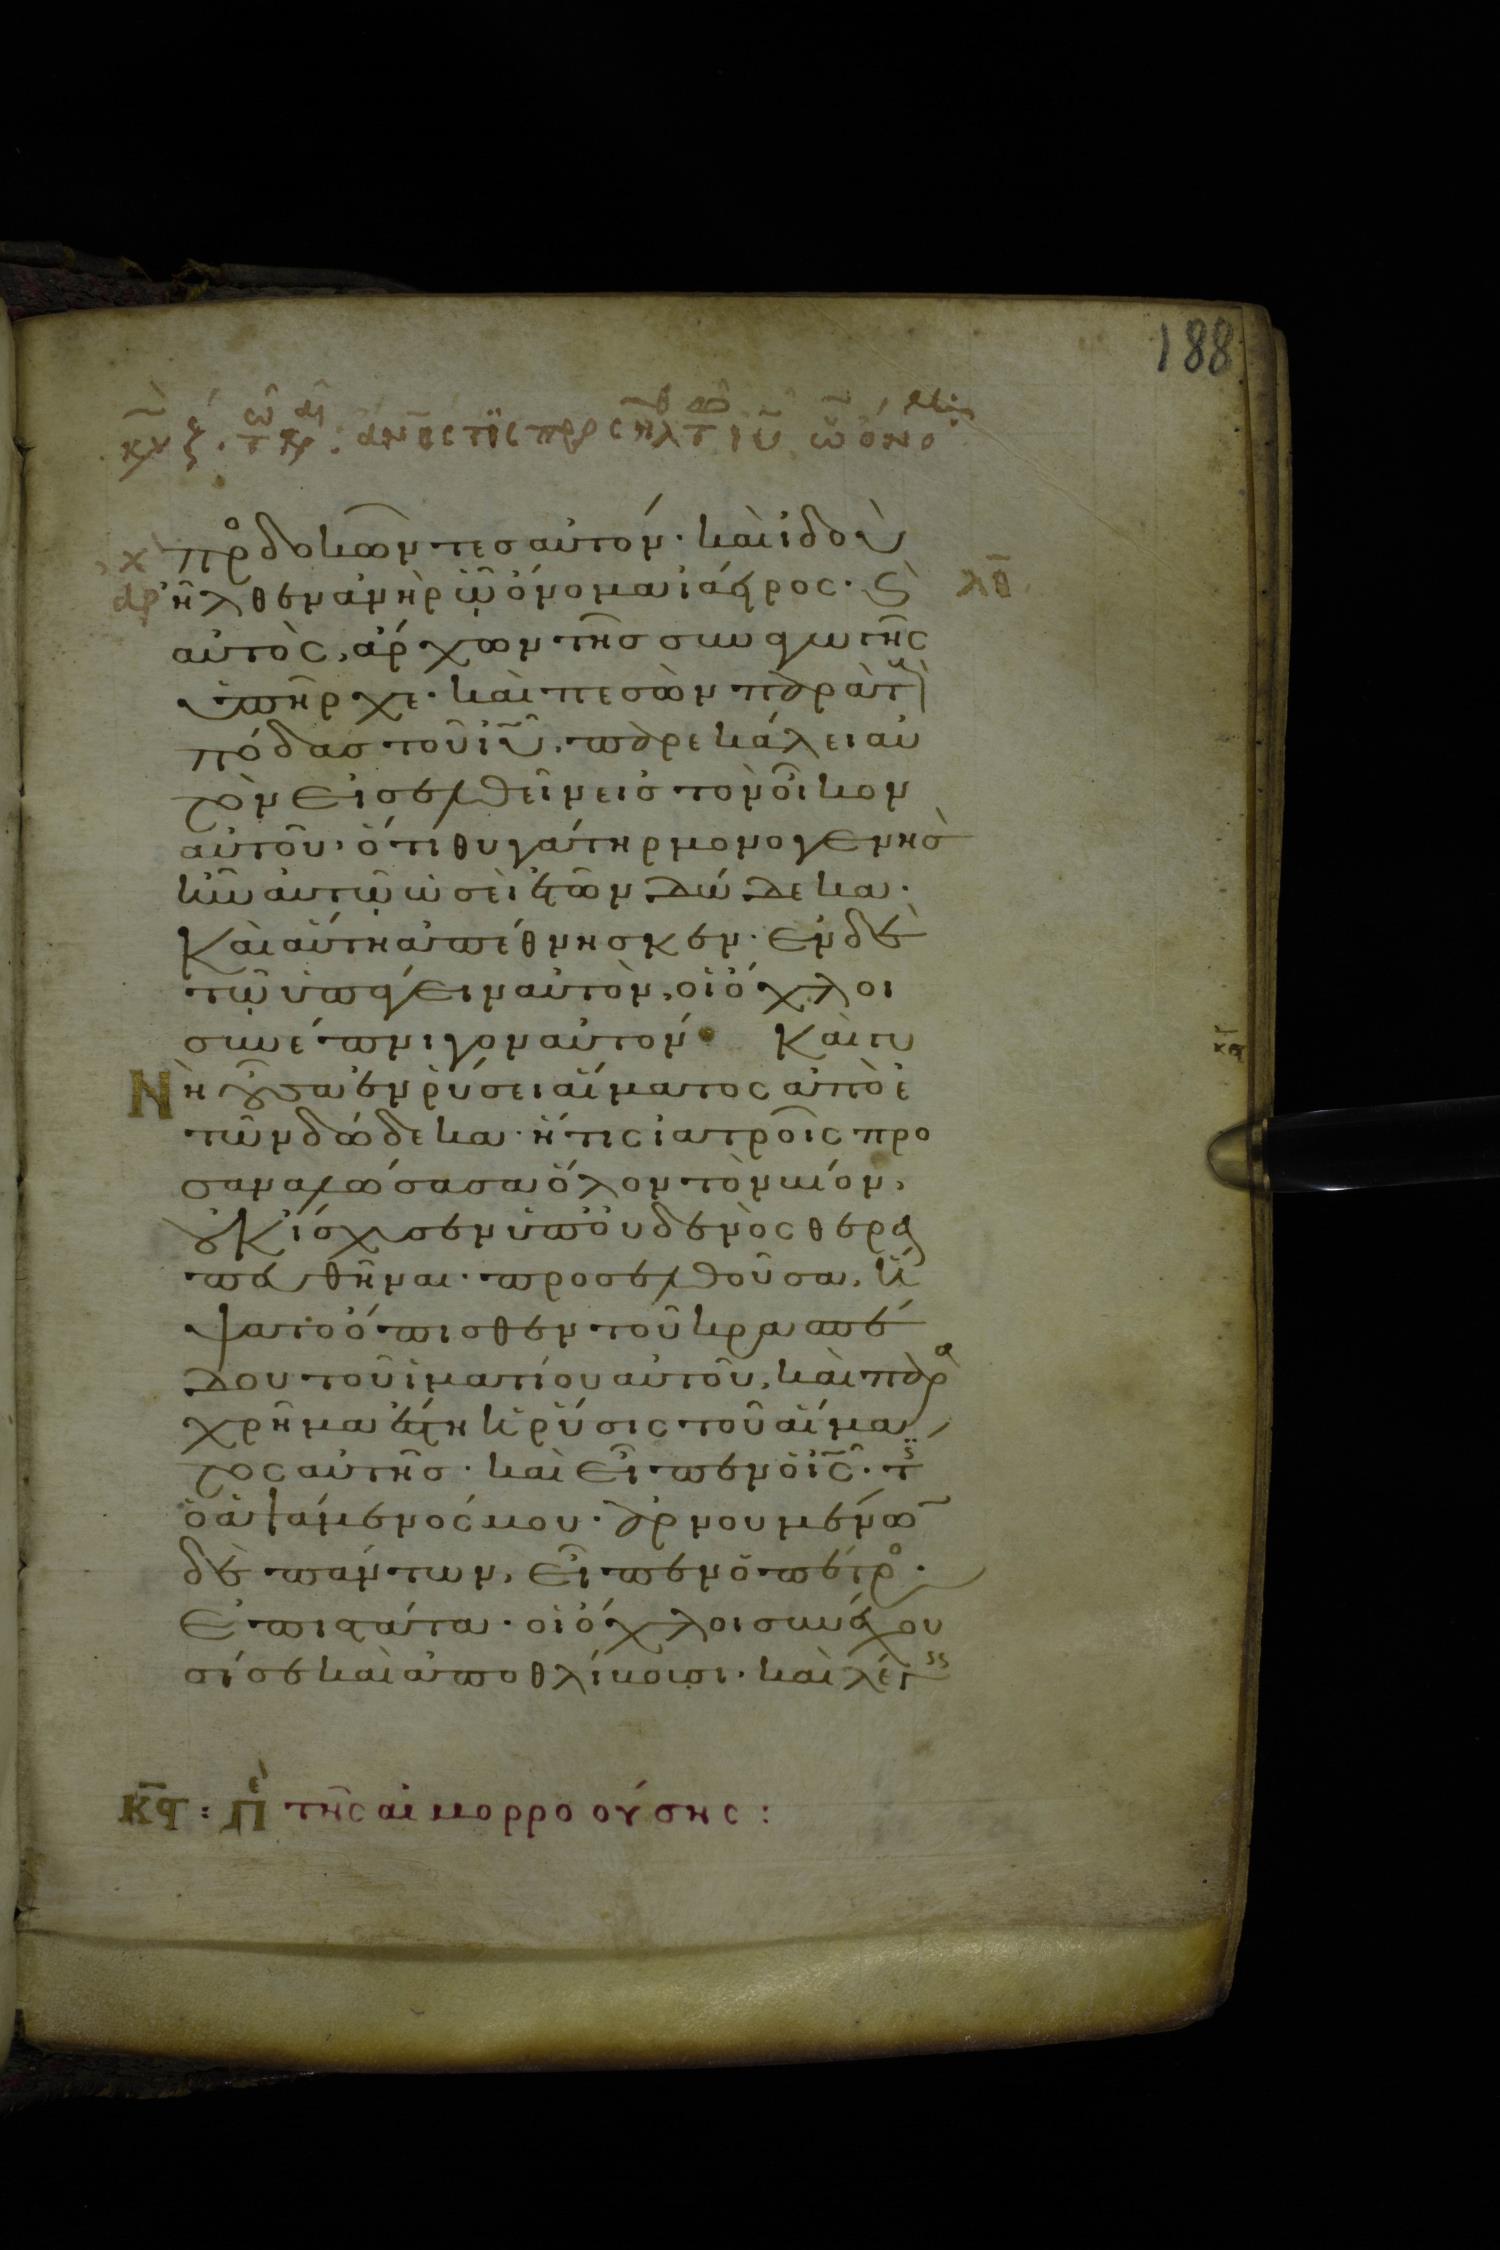 188
προσδοκῶντες αὐτόν· καὶ ἰδοὺ
ἦλθεν ἀνὴρ ᾧ ὄνομα ἰάειρος· καὶ
λθ
αὐτὸς, ἄρχων τῆς συναγωγῆς
ὑπῆρχε· καὶ πεσὼν παρὰ τοὺς
πόδας τοῦ ιυ, παρεκάλει αὐ
τὸν εἰσελθεῖν εἰς τὸν οἶκον
αὐτοῦ· ὅτι θυγάτηρ μονογενὴς
ἦν αὐτῷ ὡσεὶ ἐτῶν δώδεκα·
Καὶ αὕτη ἀπέθνησκεν· ἐν δὲ
τῷ ὑπάγειν αὐτὸν, οἱ ὄχλοι
συνέπνιγον αὐτόν· Καὶ γυ
Νὴ οὖσα ἐν ῥύσει αἵματος ἀπὸ ἐ
τῶν δώδεκα· ἥτις ἰατροῖς προ
σαναλώσασα ὅλον τὸν βίον,
οὐκ ἴσχυσεν ὑπ' οὐδενὸς θερα
πευθῆναι· προσελθοῦσα, ἥ
ψατο ὄπισθεν τοῦ κρασπέ
δου τοῦ ἱματίου αὐτοῦ, καὶ παρα
χρῆμα ἔστη ἡ ῥύσις τοῦ αἵμα
τος αὐτῆς· καὶ εἶπεν ὁ ις· τίς
ὁ ἁψάμενός μου· ἀρνουμένων
δὲ πάντων, εἶπεν ὁ πέτρος·
Ἐπιστάτα· οἱ ὄχλοι συνέχου
σί σε καὶ ἀποθλίβουσι· καὶ λέγεις
κϛ : Περὶ τῆς αἱμορροούσης :